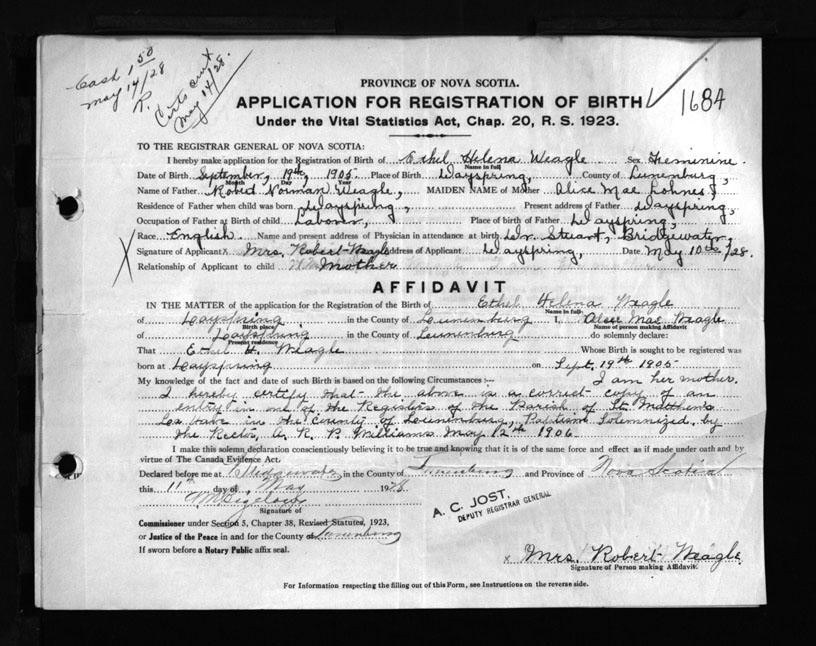 Cash 1.50
May 14/28
R.
Certs out
May 14/28.
PROVINCE OF NOVA SCOTIA.
APPLICATION FOR REGISTRATION OF BIRTH
1684
Under the Vital Statistics Act, Chap. 20, R. S. 1923.
TO THE REGISTRAR GENERAL OF NOVA SCOTIA:
I hereby make application for the Registration of Birth of Ethel Helena Weagle Sex Feminine.
Name in full
Date of Birth September, 19th, 1905 Place of Birth Dayspring, County of Lunenburg,
Month Day Year
Name of Father Robert Norman Weagle, MAIDEN NAME of Mother Alice Mae Lohnes,
Residence of Father when child was born Dayspring, Present address of Father Dayspring,
Occupation of Father at Birth of child Laborer, Place of birth of Father Dayspring,
Race English Name and present address of Physician in attendance at birth Dr. Steuart, Bridgewater,
Signature of Applicant X Mrs. Robert Weagle Address of Applicant Dayspring, Date May 10th /28.
Relationship of Applicant to child Mother
AFFIDAVIT
IN THE MATTER of the application for the Registration of the Birth of Ethel Helena Weagle
Name in full
of Dayspring in the County of Lunenburg I, Alice Mae Weagle
Birth place Name of person making Affidavit
of Dayspring in the County of Lunenburg do solemnly declare:
Present residence
That Ethel H. Weagle Whose Birth is sought to be registered was
born at Dayspring on Sept. 19th 1905
My knowledge of the fact and date of such Birth is based on the following Circumstances :— I am her mother.
I hereby certify that the above is a correct copy of an
entry in one of the Registers of the Parish of St. Matthew's
La Have in the County of Lunenburg, Baptism Solemnized by
the Rector, A. R. P. Williams May 12th 1906
I make this solemn declaration conscientiously believing it to be true and knowing that it is of the same force and effect as if made under oath and by
virtue of The Canada Evidence Act.
Declared before me at Bridgewater in the County of Lunenburg and Province of Nova Scotia
this 11th day of May 1928
Signature of
A. C. JOST,
DEPUTY REGISTRAR GENERAL
Commissioner under Section 5, Chapter 38, Revised Statutes, 1923,
or Justice of the Peace in and for the County of Lunenburg
If sworn before a Notary Public affix seal.
x Mrs. Robert Weagle
Signature of Person making Affidavit.
For Information respecting the filling out of this Form, see Instructions on the reverse side.